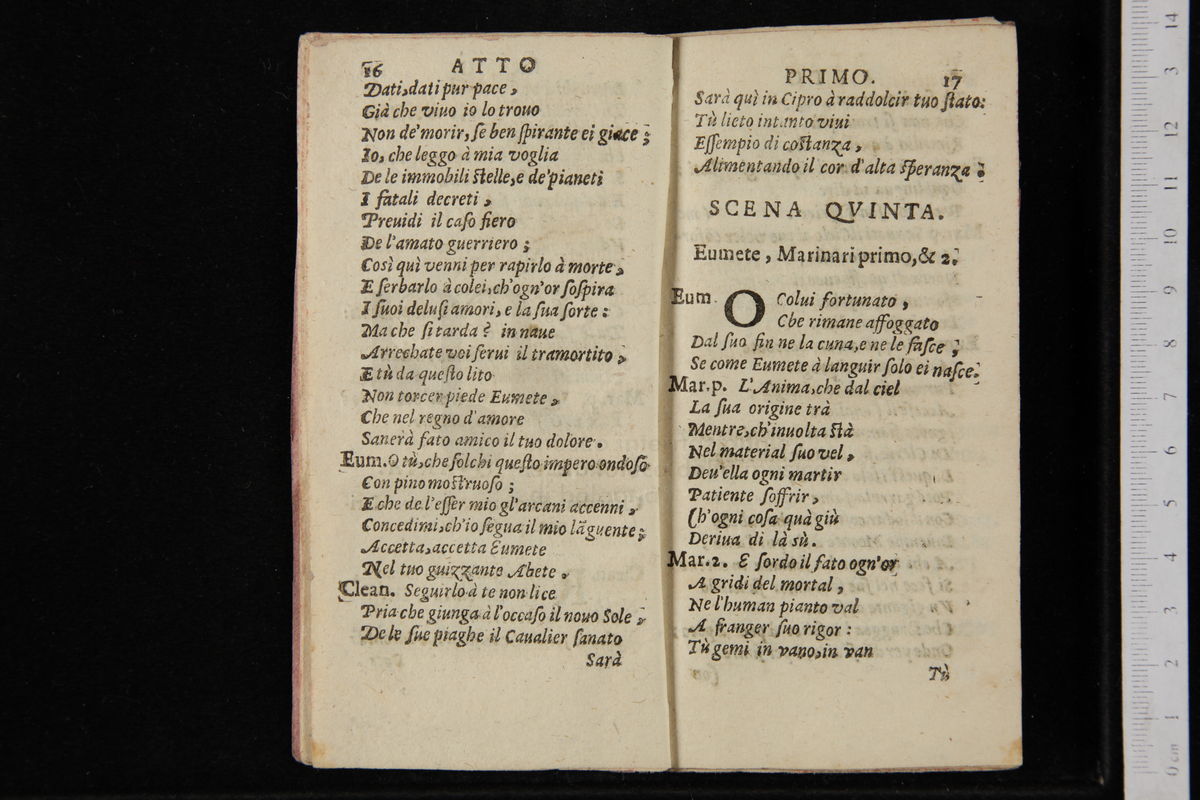 16 ATTO
Dati, dati pur pace,
Già che viuo io lo trouo
Non de' morir, se ben spirante ei giace;
Io, che leggo à mia voglia
De le immobili Stelle, e de' pianeti
I fatali decreti,
Preuidi il caso fiero
De l'amato guerriero;
Così quì venni per rapirlo à morte,
E serbarlo à colei, ch'ogn'or sospira
I suoi delusi amori, e la sua sorte:
Ma che si tarda? in naue
Arrechate voi serui il tramortito,
E tù da questo lito
Non torcer piede Eumete,
Che nel regno d'amore
Sanerà fato amico il tuo dolore.
Eum. O tù, che solchi questo impero ondoso
Con pino mostruoso;
E che de l'esser mio gl'arcani accenni,
Concedimi, ch'io segua il mio lãguente;
Accetta, accetta Eumete
Nel tuo guizzante Abete.
Clean. Seguirlo à te non lice
Pria che giunga à l'occaso il nouo Sole,
De le sue piaghe il Caualier sanato
Sarà
PRIMO. 17
Sarà quì in Cipro à raddolcir tuo stato:
Tù lieto intanto viui
Essempio di costanza,
Alimentando il cor d'alta speranza.
SCENA QVINTA.
Eumete, Marinari primo, & 2.
Eum. O Colui fortunato,
Che rimane affoggato
Dal suo fin ne la cuna, e ne le fasce;
Se come Eumete à languir solo ei nasce.
Mar.p. L'Anima, che dal ciel
La sua origine trà
Mentre, ch'inuolta stà
Nel material suo vel,
Deu'ella ogni martir
Patiente soffrir,
Ch'ogni cosa quà giù
Deriua di là sù.
Mar.2. E sordo il fato ogn'or
A gridi del mortal,
Ne l'human pianto val
A franger suo rigor:
Tù gemi in vano, in van
Tù
14
13
12
11
10
9
8
7
6
5
4
3
2
1
0 cm